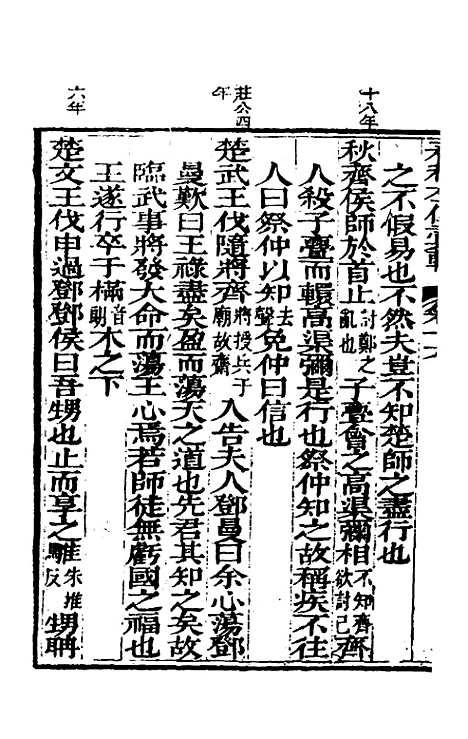 十八年
之不假易也不然夫豈不知楚師之盡行也
秋齊侯師於首止討鄭之亂也子亹會之高渠彌相不知齊欲討己齊
人殺子亹而轘高渠彌是行也祭仲知之故稱疾不往
人曰祭仲以知去聲免仲曰信也
莊公四年
楚武王伐隨將齊將授兵于廟故齋入告夫人鄧曼曰余心蕩鄧
曼歎曰王祿盡矣盈而蕩天之道也先君其知之矣故
臨武事將發大命而蕩王心焉若師徒無虧國之福也
王遂行卒于樠音朗木之下
六年
楚文王伐申過鄧鄧侯曰吾甥也止而享之騅朱堆反甥聃